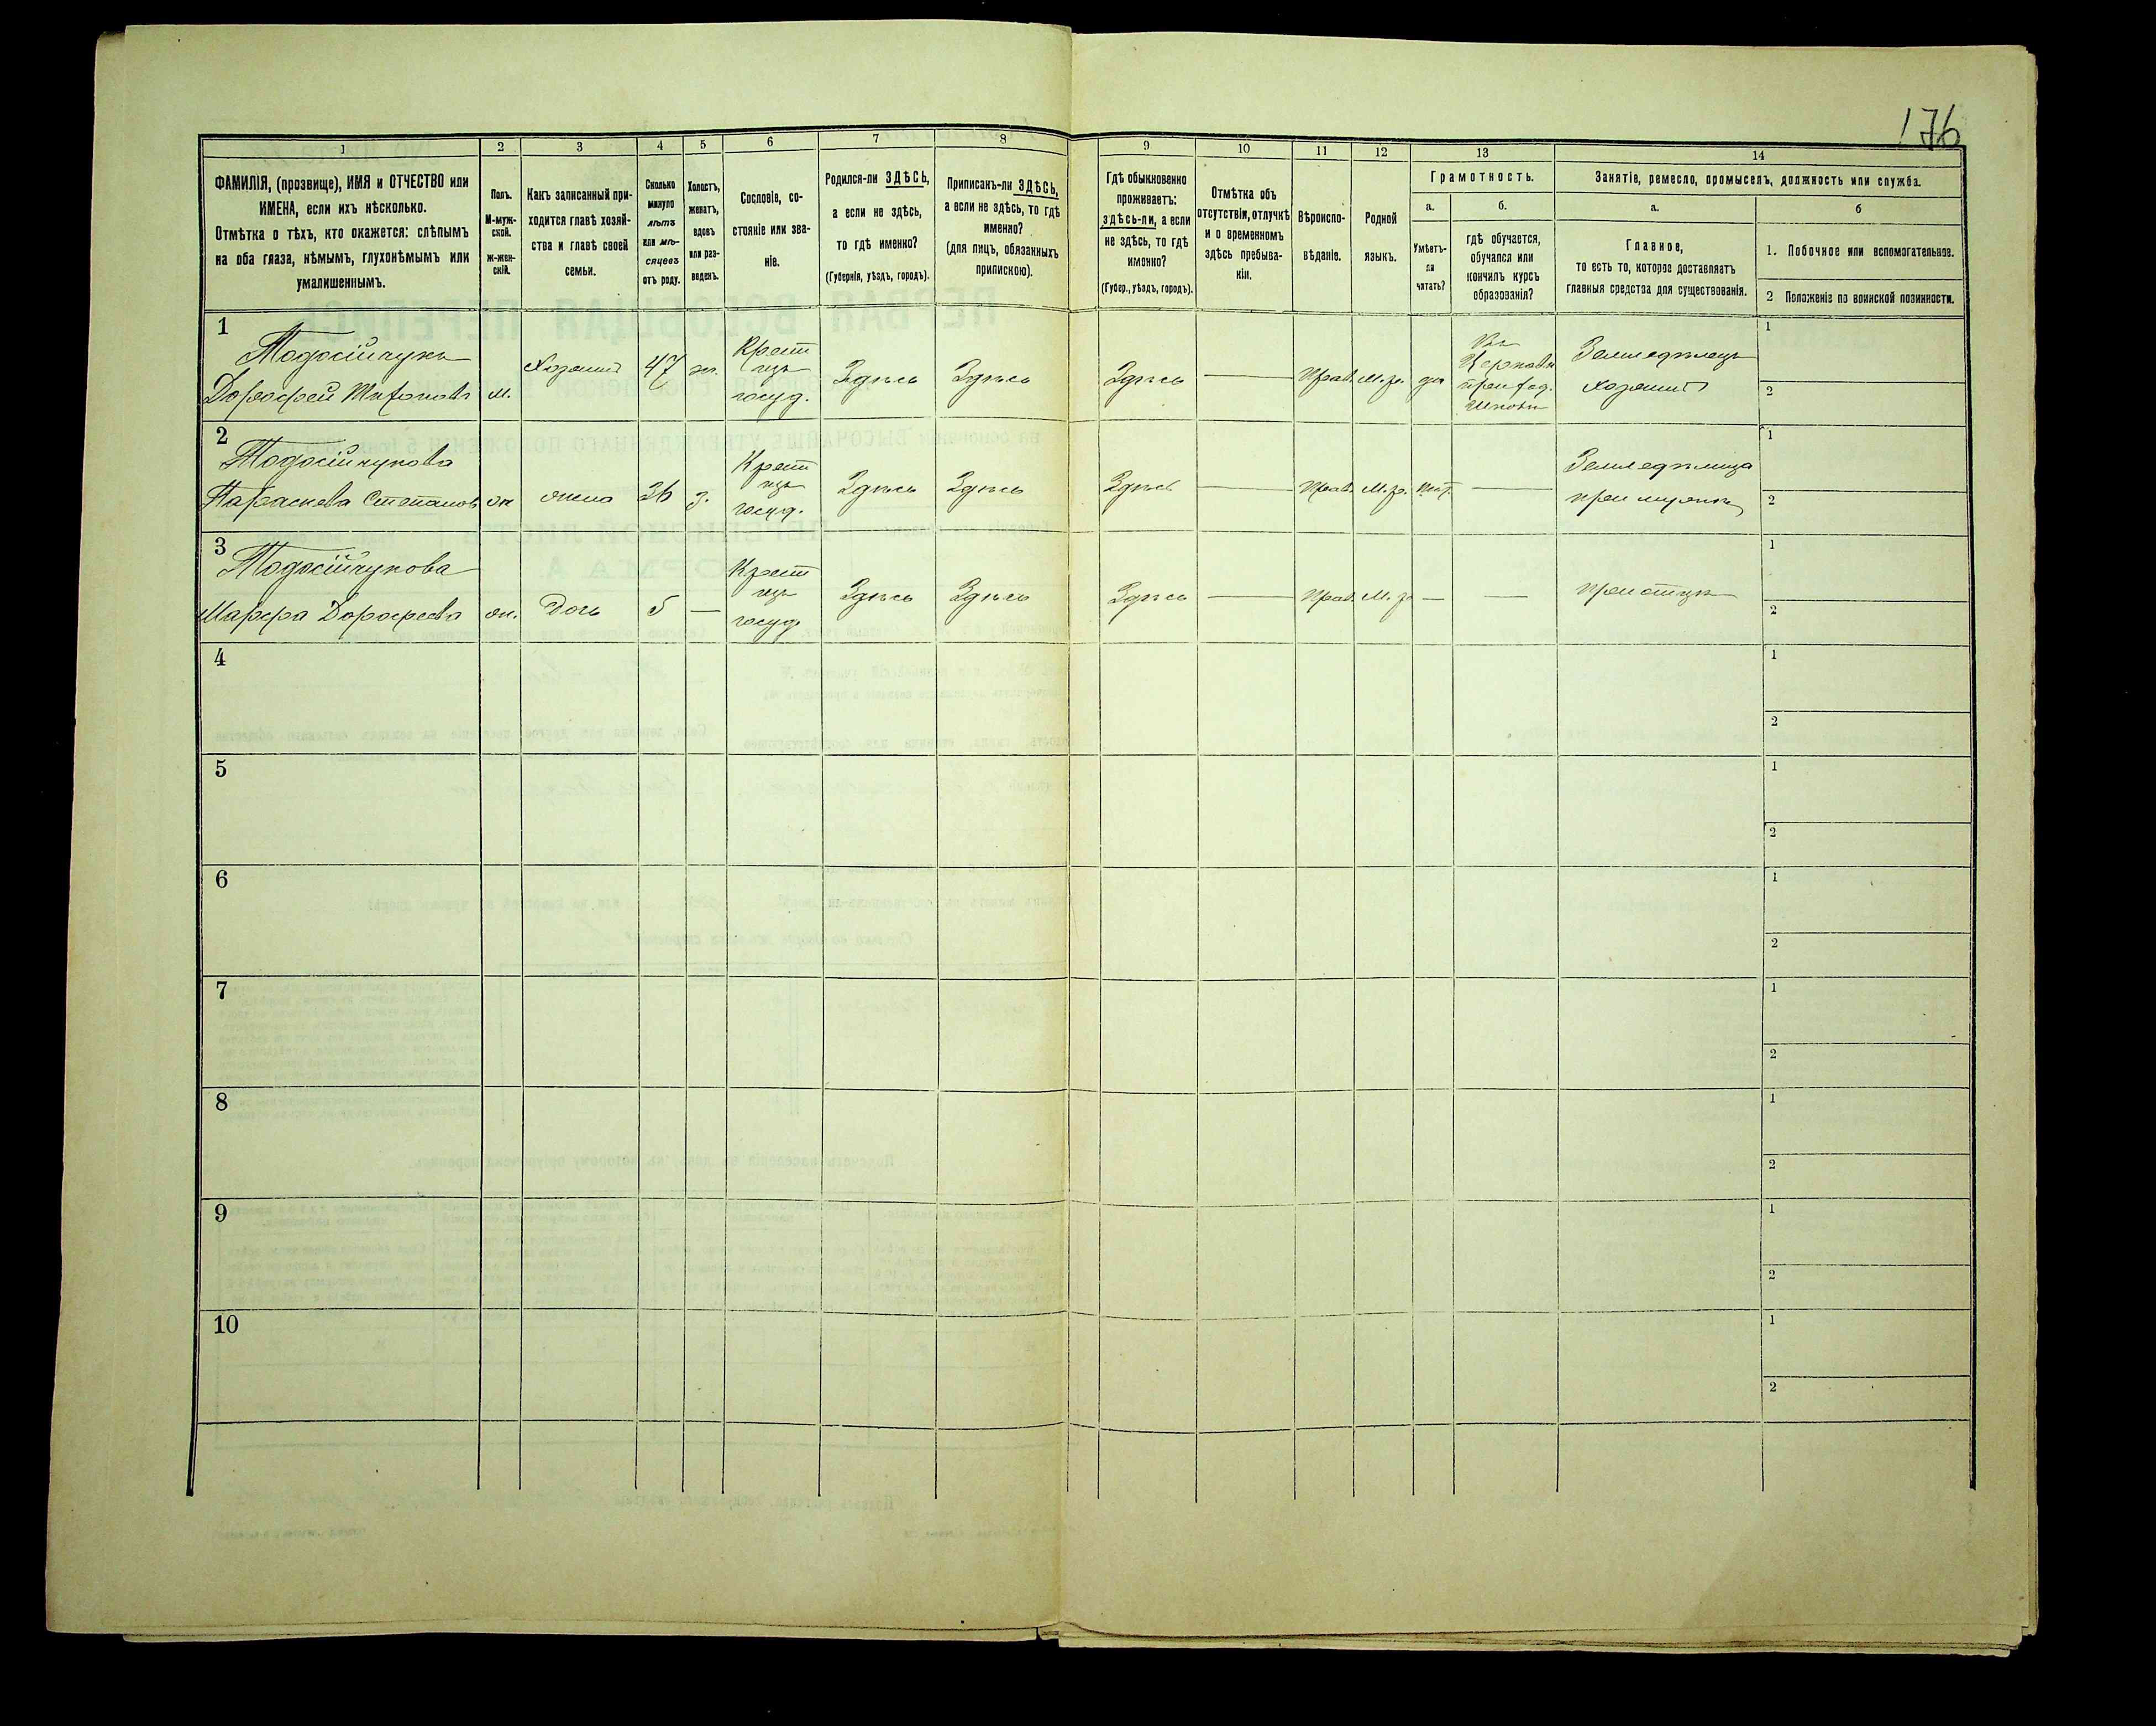 176
1
2
3
4
5
6
7
8
9
10
11
12
13
14
ФАМИЛІЯ, (прозвище), ИМЯ и ОТЧЕСТВО или
ИМЕНА, если ихъ нѣсколько.
Отмѣтка о тѣхъ, кто окажется: слѣпымъ
на оба глаза, нѣмымъ, глухонѣмымъ или
умалишеннымъ.
Полъ.
М-муж-
ской.
ж-жен-
скій.
Какъ записанный при-
ходится главѣ хозяй-
ства и главѣ своей
семьи.
Сколько
минуло
лѣтъ
или мѣ-
сяцевъ
отъ роду.
Холостъ,
женатъ,
вдовъ
или раз-
веденъ.
Сословіе, со-
стояніе или зва-
ніе.
Родился-ли ЗДѢСЬ,
а если не здѣсь,
то гдѣ именно?
(Губернія, уѣздъ, городъ).
Приписанъ-ли ЗДѢСЬ,
а если не здѣсь, то гдѣ
именно?
(для лицъ, обязанныхъ
припискою).
Гдѣ обыкновенно
проживаетъ:
здѣсь-ли, а если
не здѣсь, то гдѣ
именно?
(Губер., уѣздъ, городъ).
Отмѣтка объ
отсутствіи, отлучкѣ
и о временномъ
здѣсь пребыва-
ніи.
Вѣроиспо-
вѣданіе.
Родной
языкъ.
Грамотность.
а.
Умѣетъ-
ли
читать?
б.
гдѣ обучается,
обучался или
кончилъ курсъ
образованія?
Занятіе, ремесло, промыселъ, должность или служба.
а.
Главное,
то есть то, которое доставляетъ
главныя средства для существованія.
б
1. Побочное или вспомогательное.
2 Положеніе по воинской повинности.
1
Тодосійчукъ
Дорофей
м.
Хозяинъ
47
ж.
Крест
госуд.
Здѣсь
Здѣсь
Здѣсь
Прав.
М. р.
да
Земледѣлецъ
хозяинъ
1
2
2
Тодосійчукова
Параскева Степанов
ж
жена
36
з.
Крест
госуд.
Здѣсь
Здѣсь
Здѣсь
Прав.
М. р.
нѣт.
Земледѣлица
при мужѣ
1
2
3
Тодосійчукова
Марфа Дорофеева
ж.
Дочь
5
Крест
госуд
Здѣсь
Здѣсь
Здѣсь
Прав.
М. р
при отцѣ
1
2
4
1
2
5
1
2
6
1
2
7
1
2
8
1
2
9
1
2
10
1
2